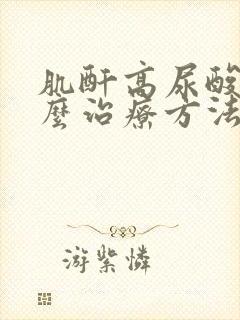 肌酐高尿酸
麼治療方法
游紫憐